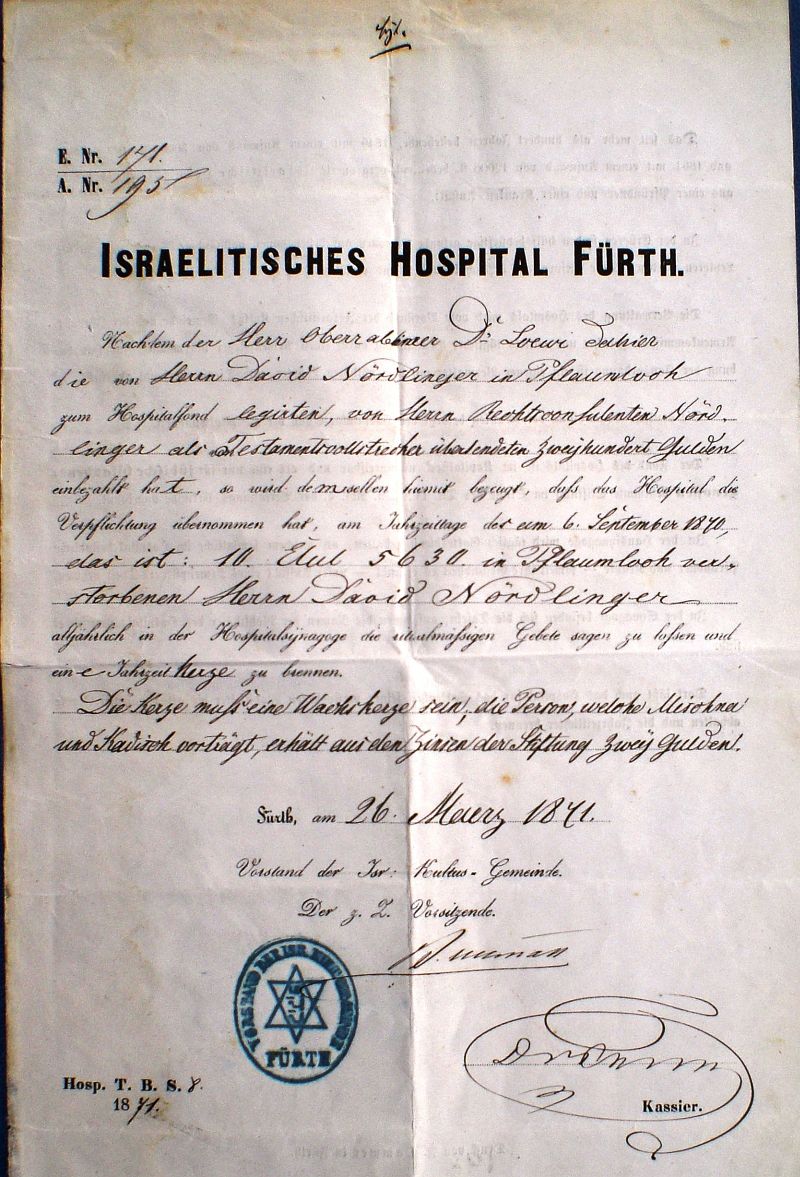 E. Nr. 171.
A. Nr. 195
ISRAELITISCHES HOSPITAL FÜRTH.
Nachdem der Herr Oberrabbiner Dr. Loewi dahier
die von Herrn David Nördlinger in Pflaumloch
zum Hospitalfond legirten, von Herrn Rechtsconsulenten Nörd-
linger als Testamentsvollstrecker übersendeten Zweihundert Gulden
einbezahlt hat, so wird demselben hiemit bezeugt, daß das Hospital die
Verpflichtung übernommen hat, am Jahrzeittage des am 6. September 1870,
das ist: 10. Elul 5630. in Pflaumloch ver-
storbenen Herrn David Nördlinger
alljährlich in der Hospitalsynagoge die ritualmässigen Gebete sagen zu lassen und
eine Jahrzeit Kerze zu brennen.
Die Kerze muß eine Wachskerze sein, die Person, welche Mischna
und Kadisch vorträgt, erhält aus den Zinsen der Stiftung Zweij Gulden.
Fürth, am 26. Maerz 1871.
Vorstand der Isr. Kultus-Gemeinde.
Der z. Z. Vorsitzende.
VORSTAND DER ISR. KULTUSGEMEINDE
FÜRTH
Hosp. T. B. S. 8.
1871.
Kassier.